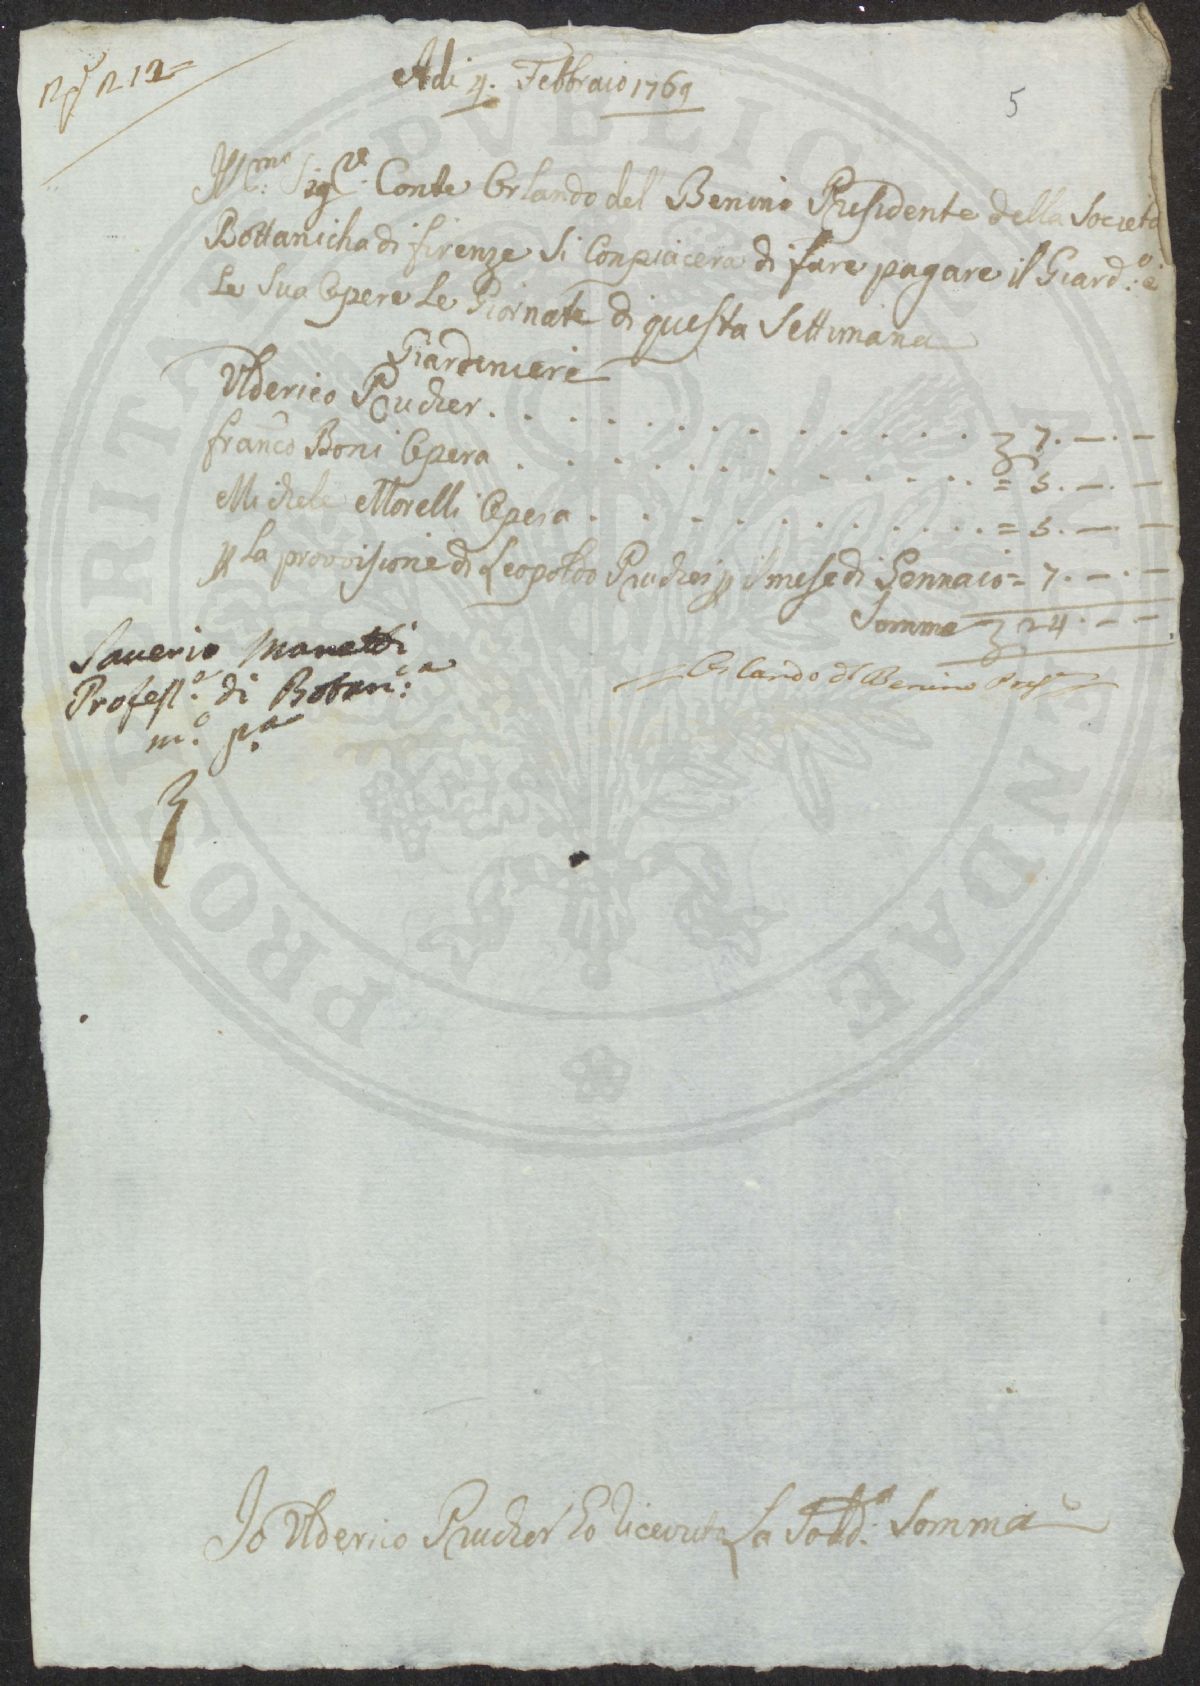 Adi 4. Febbraio 1769
5
Ill:mo Sig:re Conte Orlando del Benino Presidente della Società
Bottanicha di firenze si Conpiacera di fare pagare il Giard:o e
Le Sua Opere Le Giornate di questa Settimana
Giardiniere
Ulderico Prucher . . . . . . . . . . . . . 7. —. —
franco Boni Opera . . . . . . . . . . . = 5. —. —
Michele Morelli Opera . . . . . . . . . = 5. —. —
La provvisione di Leopoldo Prucher il mese di Gennaio = 7. —. —
Somma 24. — —
Saverio Manetti
Profess:e di Botan:ca
m:o p:a
Orlando del Benino Pres:e
Io Ulderico Prucher ho ricevuto La Sodd:a Somma
PROSPERITATI PVBLICAE AVGENDAE